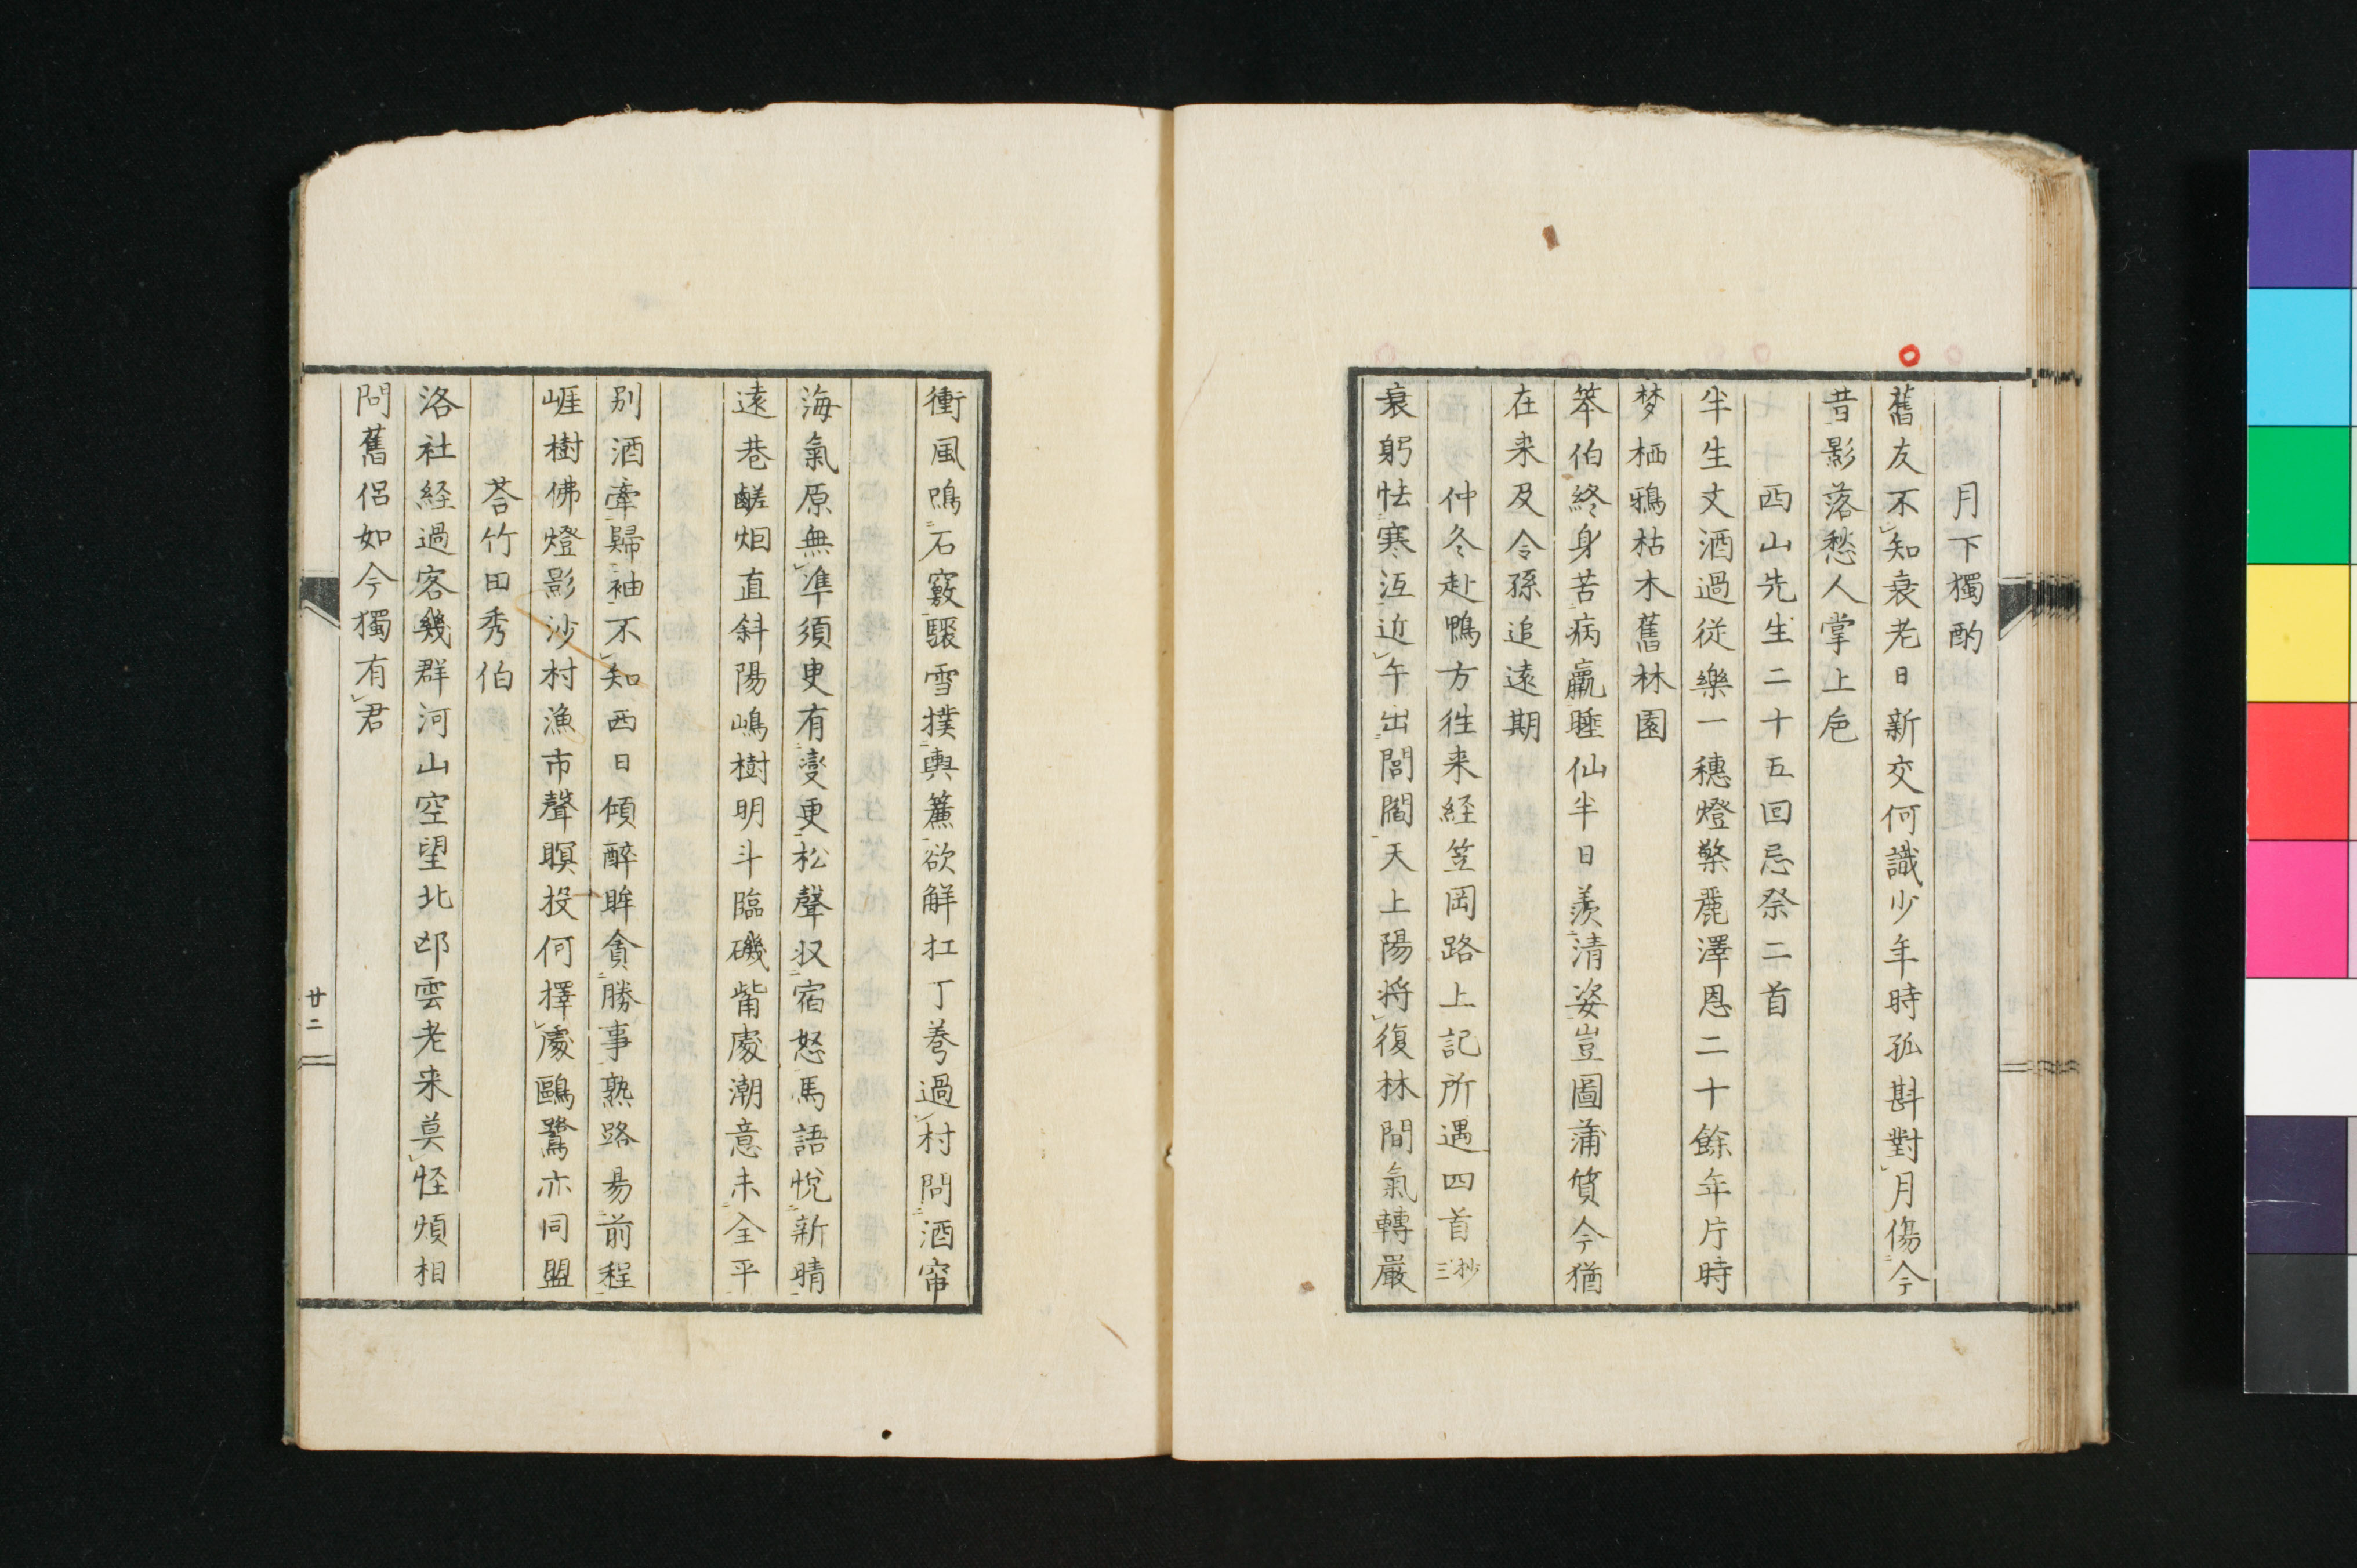 月下獨酌
舊友不知衰老日新交何識少年時孤斟對月傷今
昔影落愁人掌上巵
西山先生二十五回忌祭二首
半生文酒過従樂一穗燈檠麗澤恩二十餘年片時
梦栖鴉枯木舊林園
笨伯終身苦病羸睡仙半日羨清姿豈圖蒲質今猶
在来及令孫追遠期
仲冬赴鴨方往来経笠岡路上記所遇四首 抄三
衰躬怯寒冱近午出閭閻天上陽将復林間氣轉嚴
衝風鳴石竅驟雪撲輿簾欲解扛丁養過村問酒帘
海氣原無準須臾有變更松聲収宿怒馬語悅新晴
遠巷鹺烟直斜陽嶋樹明斗臨磯觜處潮意未全平
別酒牽歸袖不知西日傾醉眸貪勝事熟路易前程
崕樹佛燈影沙村漁市聲暝投何擇處鷗鷺亦同盟
荅竹田秀伯
洛社経過客幾群河山空望北邙雲老来莫怪煩相
問舊侶如今獨有君
廿二